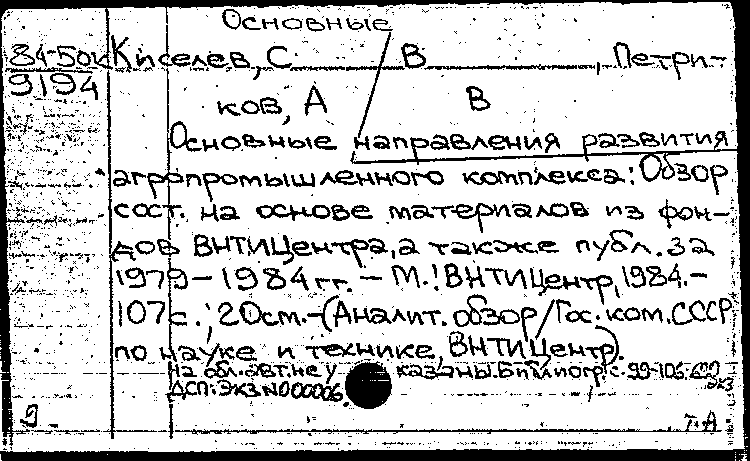 Основные
84-5ок Киселев, С В , Петри-
9194
ков, А В
Основные направления развития
агропромышленного комплекса: Обзор
сост. на основе материалов из фон-
дов ВНТИЦентра, а также публ. за
1979-1984 гг. - М.: ВНТИЦентр, 1984.-
107с.; 20см.-(Аналит. обзор/Гос. ком. СССР
по науке и технике, ВНТИЦентр).
на обл. авт. не указаны. Библиогр.: с. 99-106. 600 экз
ДСП: Экз N000006.
9 Т-А